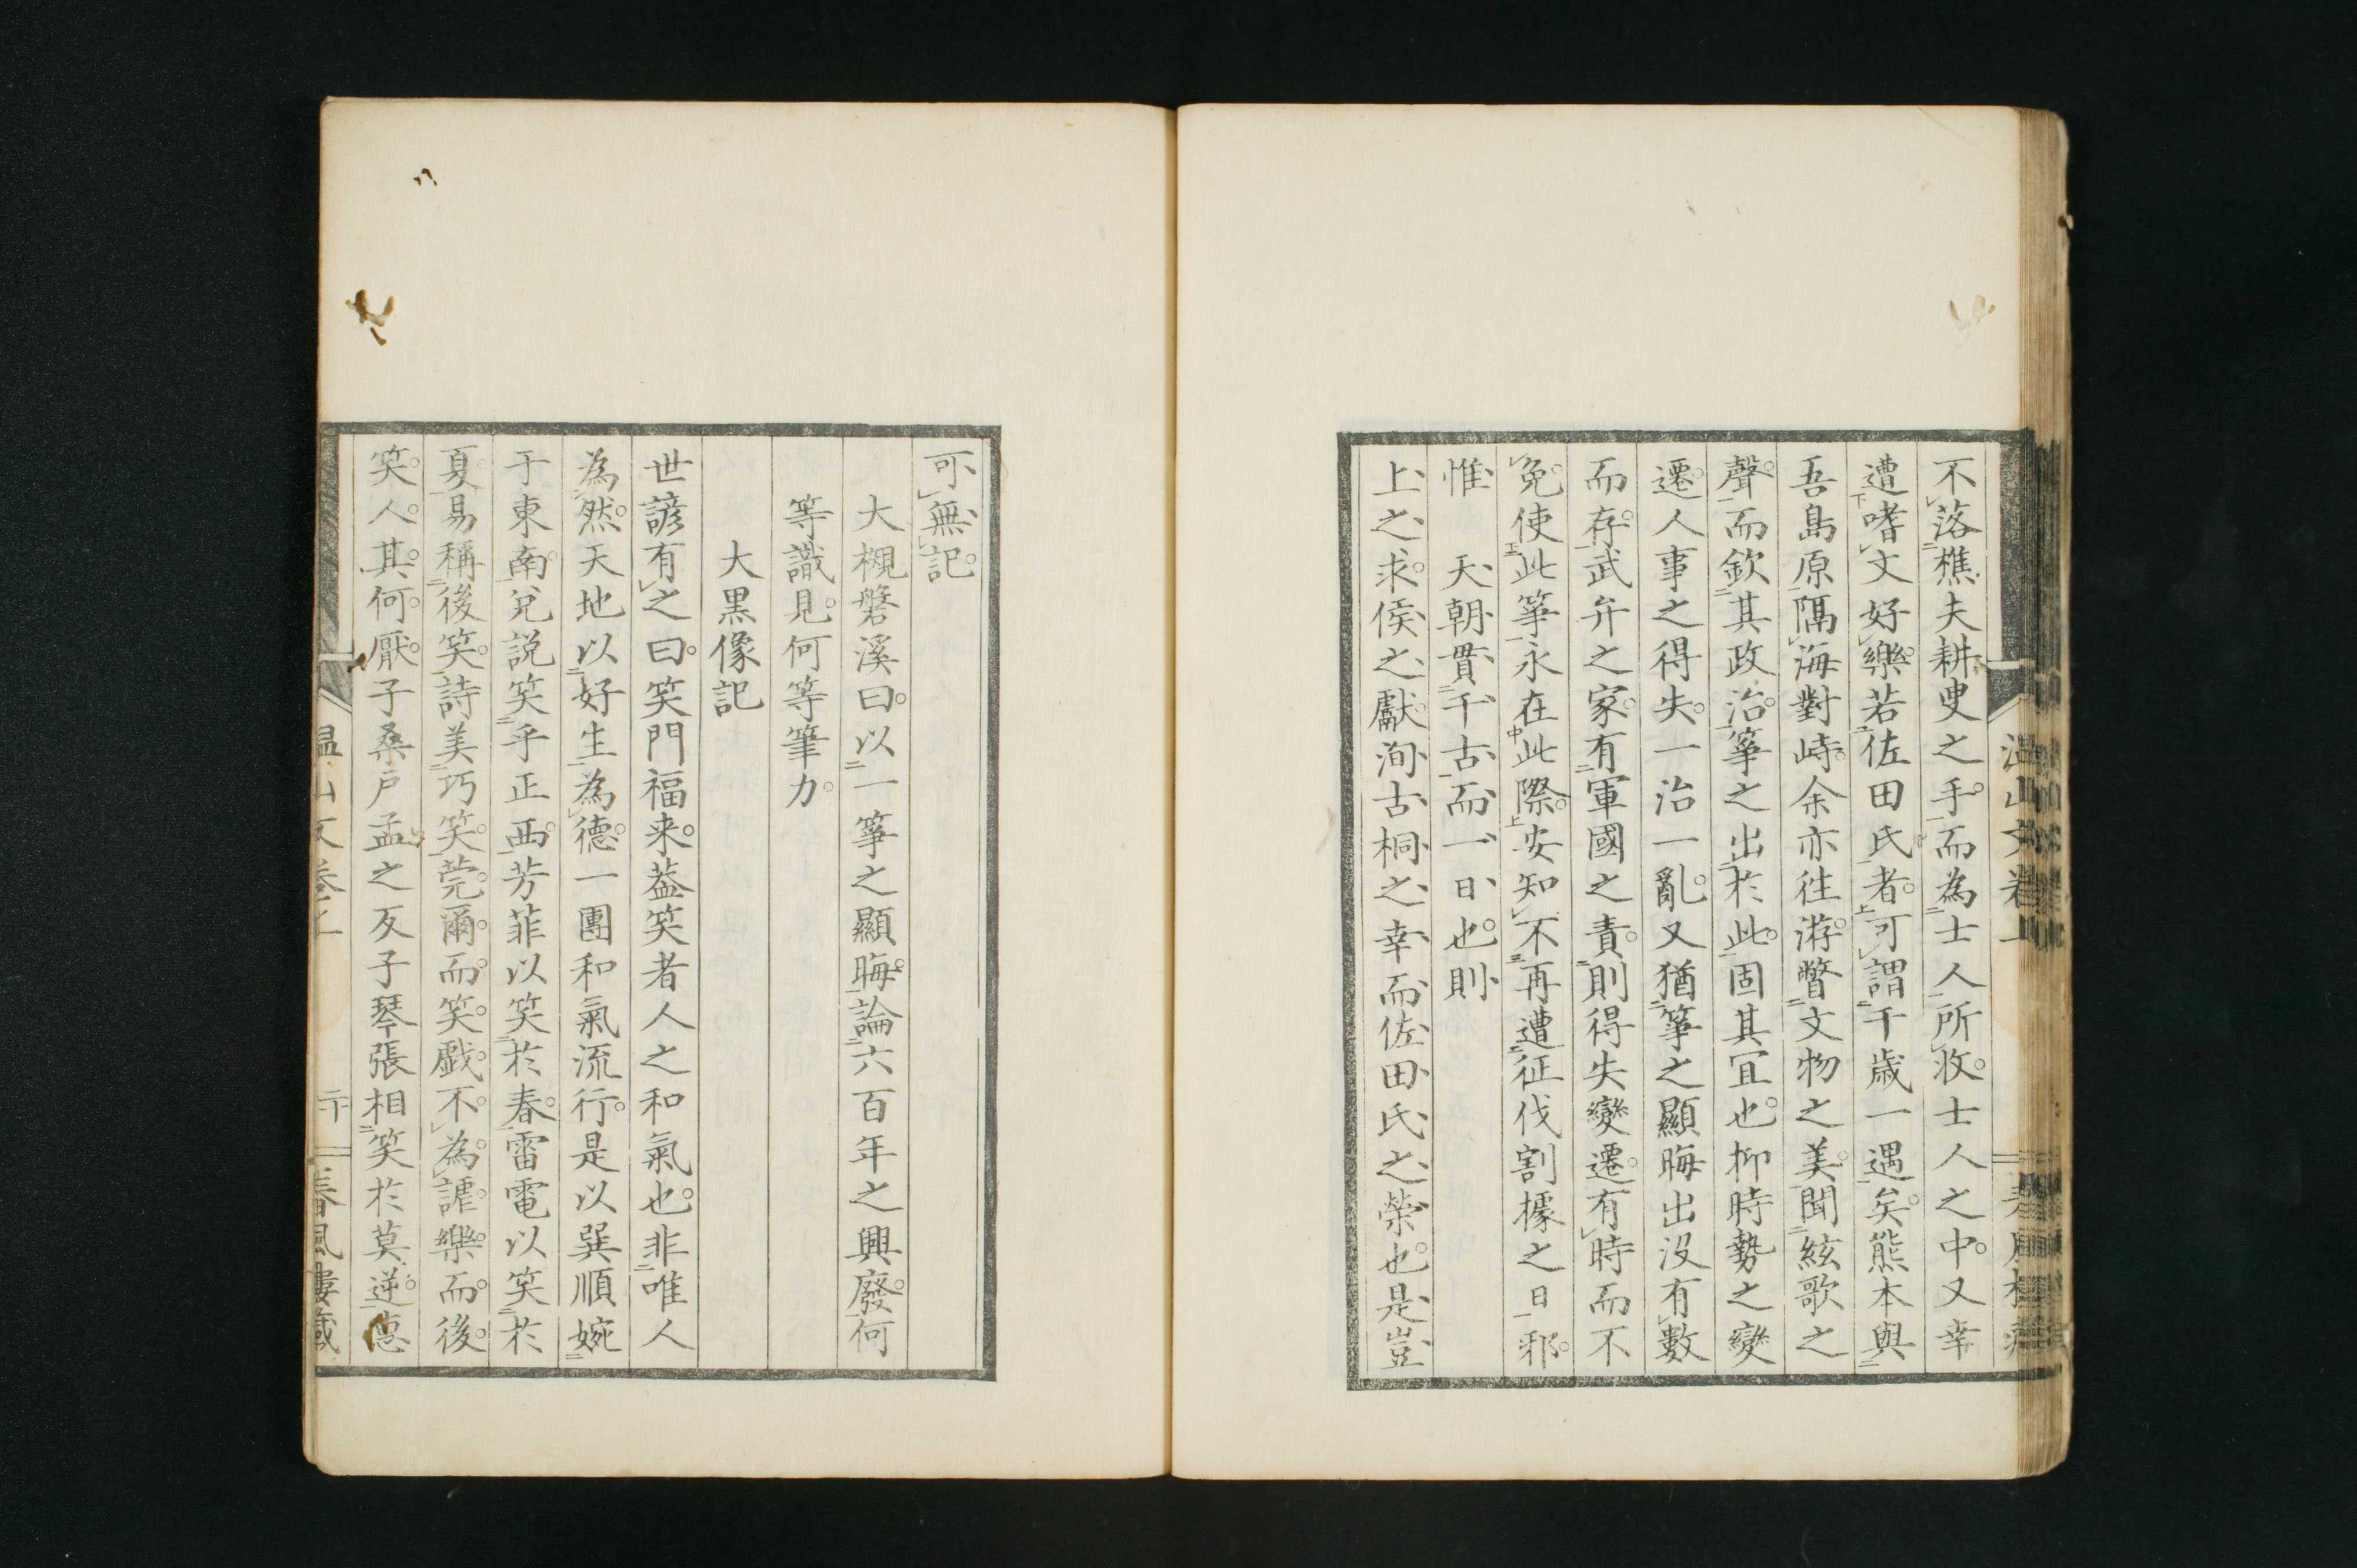 不落樵夫耕叟之手。而為士人所收。士人之中。又幸
遭嗜文好樂。若佐田氏者。可謂千歳一遇矣。熊本與
吾島原隔海對峙。余亦往游。瞥文物之美。聞絃歌之
聲。而欽其政治。箏之出於此。固其冝也。抑時勢之變
遷。人事之得失。一治一亂。又猶箏之顯晦出没有數
而存。武弁之家。有軍國之責。則得失變遷。有時而不
免。使此箏永在此際。安知不再遭征伐割據之日邪。
惟　天朝貫千古而一日也。則
上之求。侯之獻。洵古桐之幸。而佐田氏之榮也。是豈
温山文卷上
可無記。
大槻磐溪曰。以一箏之顯晦。論六百年之興廢。何
等識見。何等筆力。
大黒像記
世諺有之曰。笑門福来。葢笑者人之和氣也。非唯人
為然。天地以好生為德。一團和氣流行。是以巽順婉
于東南。兌説笑乎正西。芳菲以笑於春。雷電以笑於
夏。易稱後笑。詩美巧笑。莞爾而笑。戯不為謔。樂而後
笑。人其何厭。子桑戸孟之反子琴張相笑於莫逆。惠
温山文卷上　二十　春風樓藏